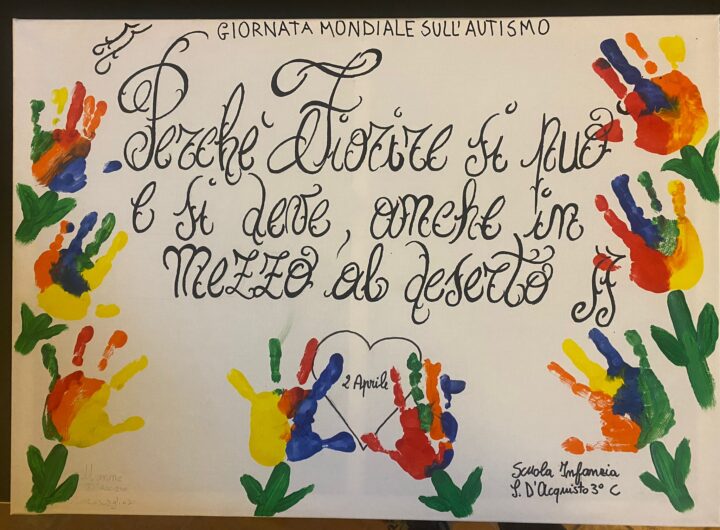 GIORNATA MONDIALE SULL'AUTISMO
"Perchè Fiorire si può
e si deve, anche in
mezzo al deserto"
2 Aprile
Scuola Infanzia
S. D'Acquisto 3° C